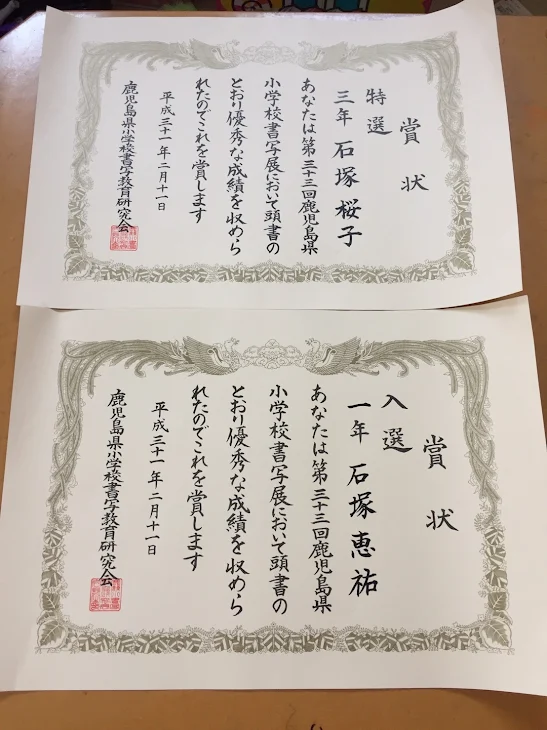 賞状
特選
三年 石塚桜子
あなたは第三十三回鹿児島県
小学校書写展において頭書の
とおり優秀な成績を収めら
れたのでこれを賞します
平成三十一年二月十一日
鹿児島県小学校書写教育研究会
賞状
入選
一年 石塚恵祐
あなたは第三十三回鹿児島県
小学校書写展において頭書の
とおり優秀な成績を収めら
れたのでこれを賞します
平成三十一年二月十一日
鹿児島県小学校書写教育研究会